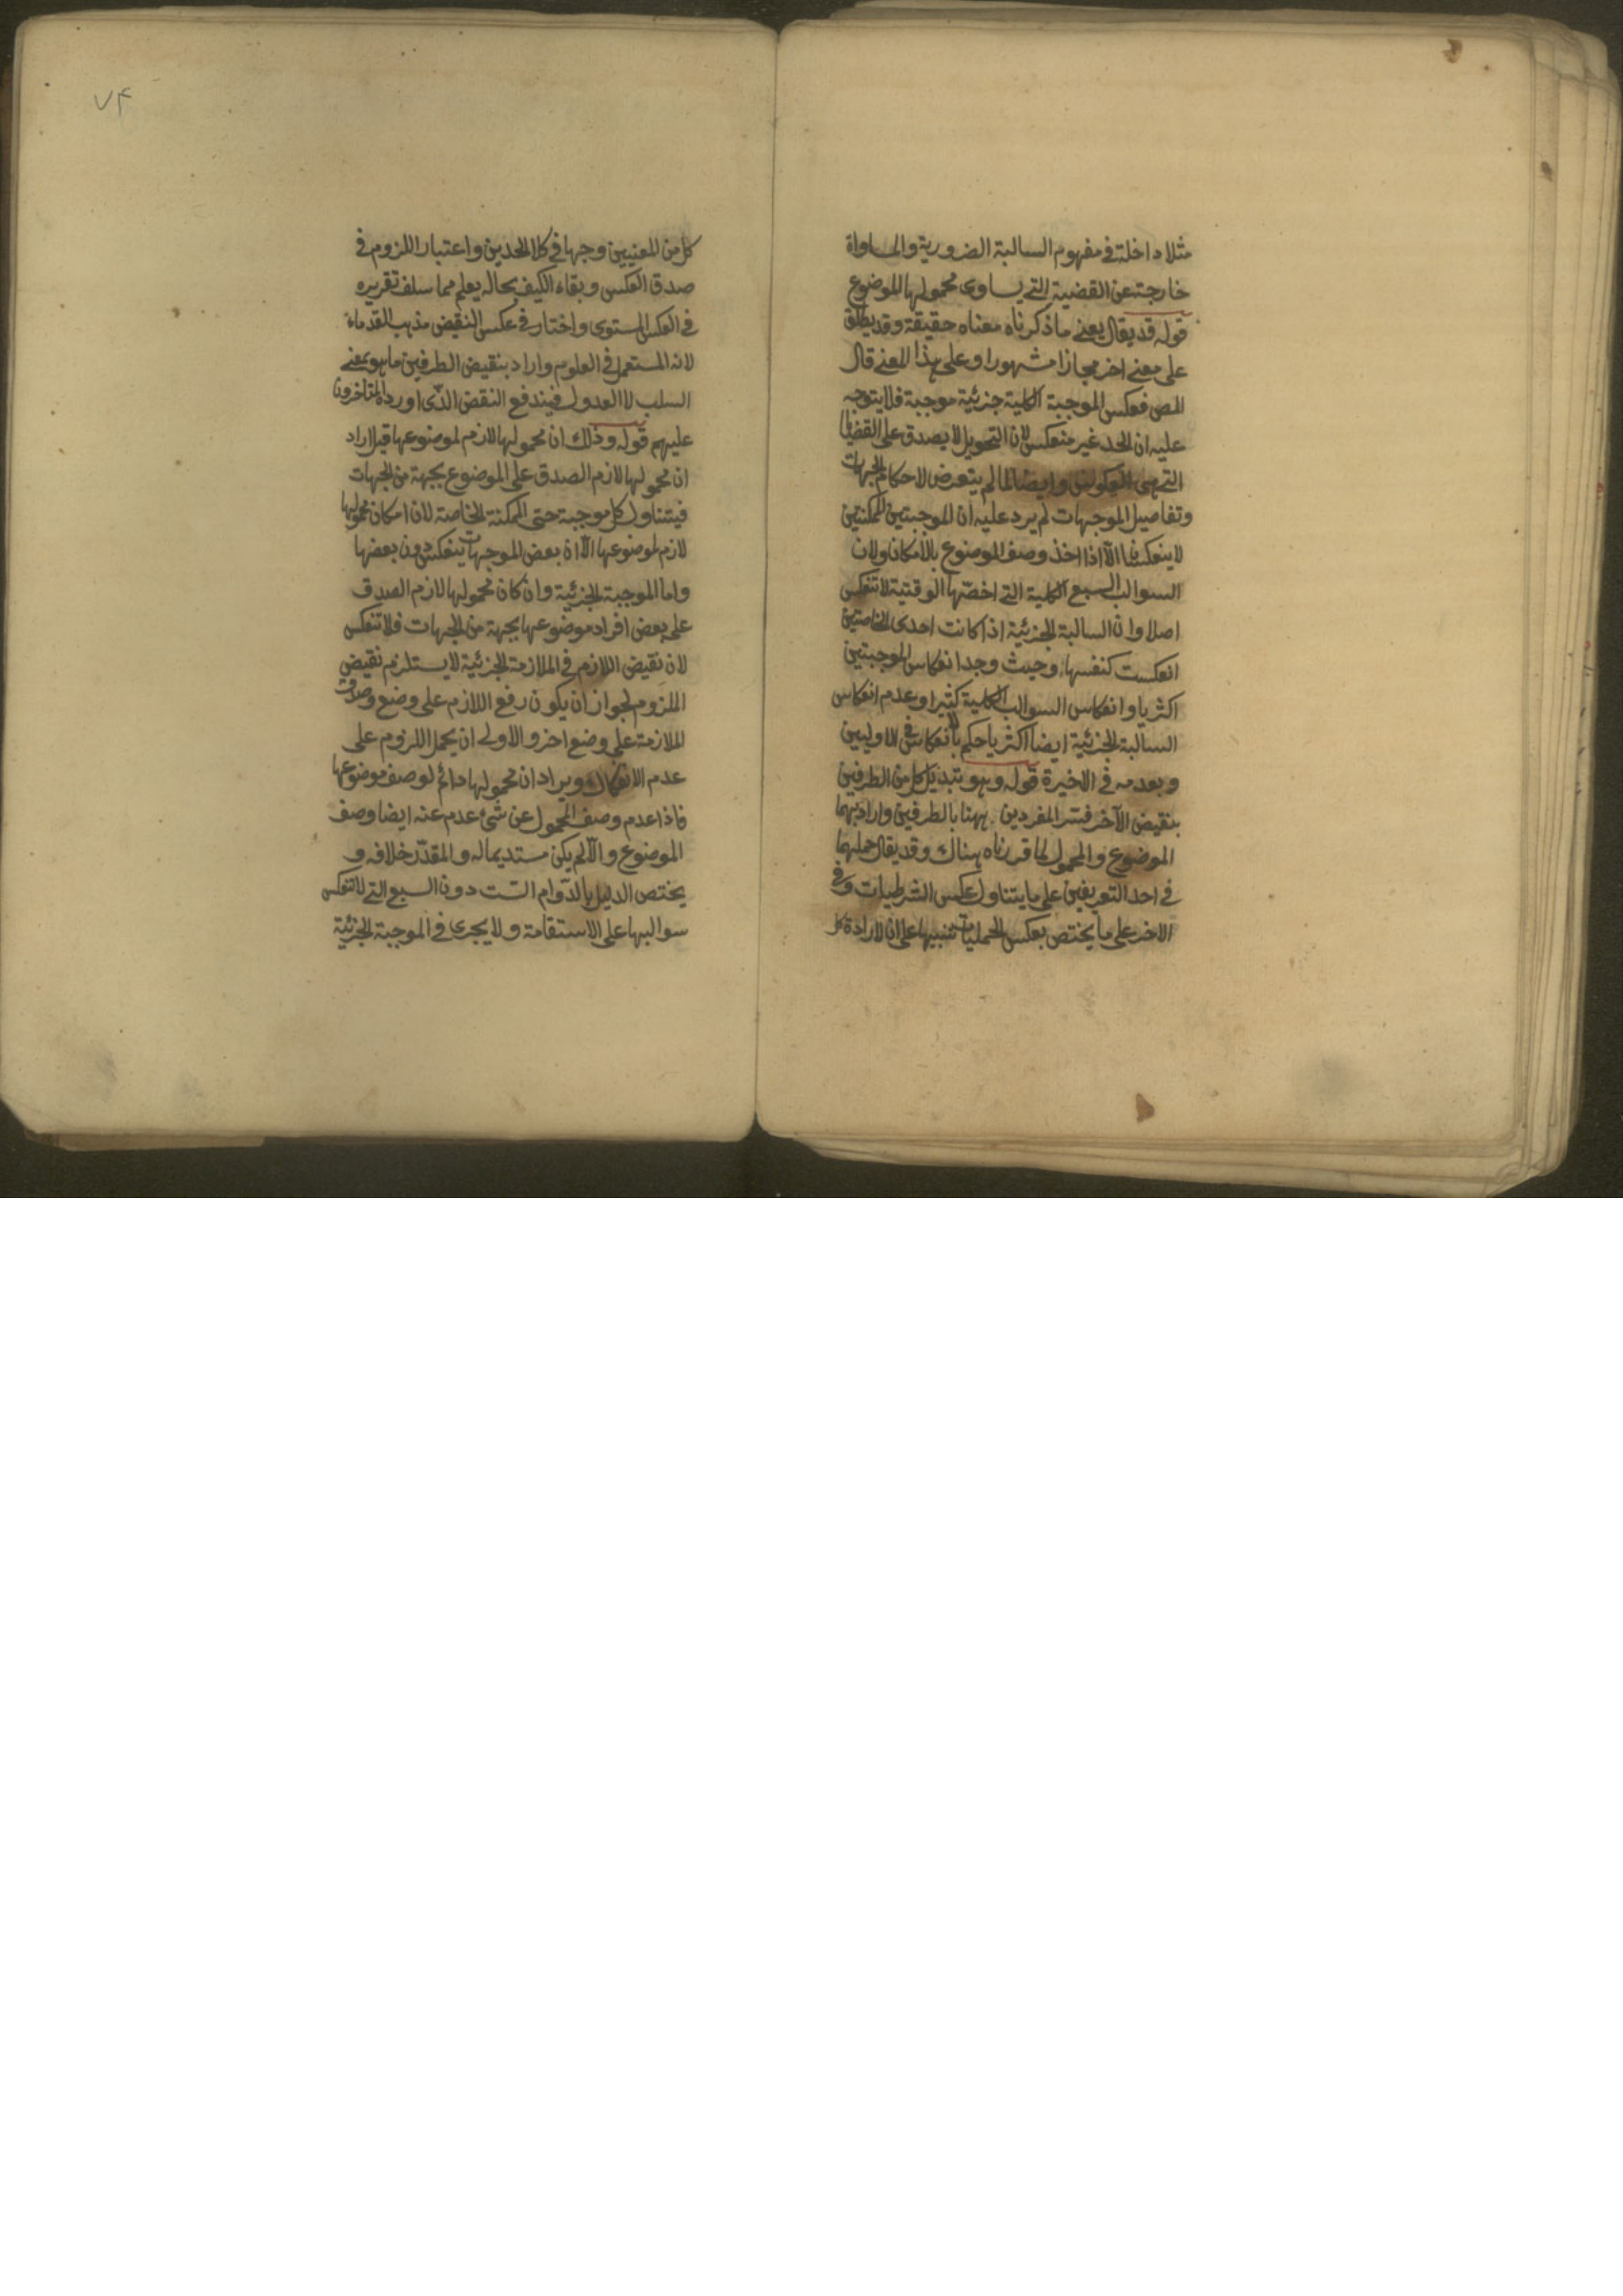 مثلا داخلة في مفهوم السالبة الضرورية والمساواة
خارجة عن القضية التي يساوى محمولها للموضوع
قوله قد يقال يعنى ما ذكرناه معناه حقيقة وقد يطلق
على معنى اخر مجازا مشهورا وعلى هذا المعنى قال
المص فعكس الموجبة الكلية جزئية موجبة فلا يتوجه
عليه ان الحد غير منعكس لان التحويل لا يصدق على القضايا
التي هى العكوس وايضا لما لم يتعرض لاحكام الجهات
وتفاصيل الموجهات لم يرد عليه ان الموجبتين الممكنتين
لا ينعكسان الّا اذا اخذ وصف الموضوع بالامكان ولان
السوالب السبع الكلية التي اخصّها الوقتية لا تنعكس
اصلا وان السالبة الجزئية اذا كانت احدى الخاصتين
انعكست كنفسها وحيث وجد انعكاس الموجبتين
اكثريا وانعكاس السوالب الكلية كثيرا وعدم انعكاس
السالبة الجزئية ايضا اكثريا حكم بالانعكاس في الاوليين
وبعدمه في الاخيرة قوله وهو تبديل كل من الطرفين
بنقيض الآخر فسّر المفردين ههنا بالطرفين واراد بهما
الموضوع والمحمول لما قررناه هناك وقد يقال حملهما
في احد التعريفين على ما يتناول عكس الشرطيات وفي
الاخر على ما يختص بعكس الحمليات تنبيها على ان لارادة كل
٧۴
كل من المعنيين وجها في كلا الحدين واعتبار اللزوم في
صدق العكس وبقاء الكيف بحاله يعلم مما سلف تقريره
في العكس المستوى واختار في عكس النقيض مذهب القدماء
لانه المستعمل في العلوم واراد بنقيض الطرفين ما هو بمعنى
السلب لا العدول فيندفع النقض الذى اورده المتاخرون
عليهم قوله وذلك ان محمولها لازم لموضوعها قيل اراد
ان محمولها لازم الصدق على الموضوع بجهة من الجهات
فيتناول كل موجبة حتى الممكنة الخاصة لان امكان محمولها
لازم لموضوعها الّا ان بعض الموجهات ينعكس دون بعضها
واما الموجبة الجزئية وان كان محمولها لازم الصدق
على بعض افراد موضوعها بجهة من الجهات فلا تنعكس
لان نقيض اللازم في الملازمة الجزئية لا يستلزم نقيض
الملزوم لجواز ان يكون رفع اللازم على وضع وصدق
الملازمة على وضع اخر والاولى ان يحمل اللزوم على
عدم الانفكاك ويراد ان محمولها دائم لوصف موضوعها
فاذا عدم وصف المحمول عن شئ عدم عنه ايضا وصف
الموضوع والّا لم يكن مستديما له والمقدّر خلافه و
يختص الدليل بالدّوام الست دون السبع التي لا تنعكس
سوالبها على الاستقامة ولا يجرى في الموجبة الجزئية